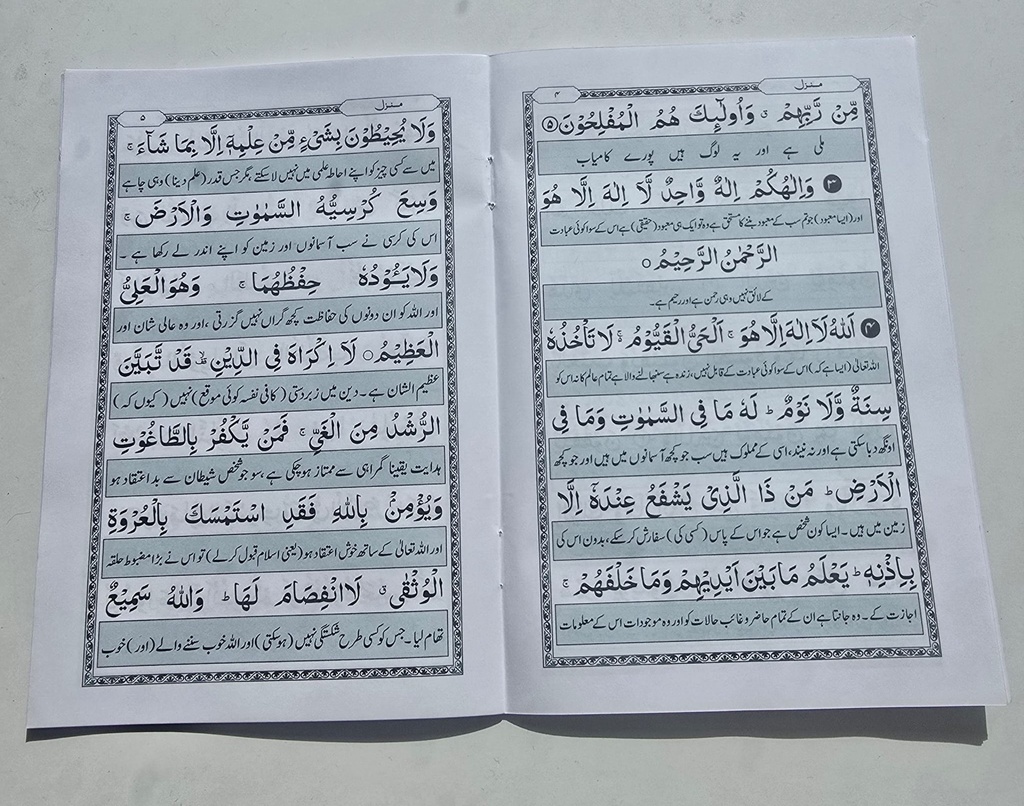 منزل
۴
مِّنْ رَّبِّهِمْ ۗ وَاُولٰٓئِكَ هُمُ الْمُفْلِحُوْنَ ⑤
ملی ہے اور یہ لوگ ہیں پورے کامیاب
۳ وَاِلٰهُكُمْ اِلٰهٌ وَّاحِدٌ لَّآ اِلٰهَ اِلَّا هُوَ
اور (ایسا معبود) جو تم سب کے معبود بننے کا مستحق ہے وہ تو ایک ہی معبود (حقیقی) ہے اس کے سوا کوئی عبادت
الرَّحْمٰنُ الرَّحِيْمُ ○
کے لائق نہیں وہی رحمن ہے اور رحیم ہے۔
۴ اَللهُ لَآ اِلٰهَ اِلَّا هُوَ ۚ اَلْحَيُّ الْقَيُّوْمُ ۚ لَا تَاْخُذُهٗ
اللہ تعالیٰ (ایسا ہے کہ) اس کے سوا کوئی عبادت کے قابل نہیں، زندہ ہے سنبھالنے والا ہے تمام عالم کا نہ اس کو
سِنَةٌ وَّلَا نَوْمٌ ؕ لَهٗ مَا فِى السَّمٰوٰتِ وَمَا فِى
اونگھ دبا سکتی ہے اور نہ نیند، اسی کے مملوک ہیں سب جو کچھ آسمانوں میں ہیں اور جو کچھ
الْاَرْضِ ؕ مَنْ ذَا الَّذِىْ يَشْفَعُ عِنْدَهٗٓ اِلَّا
زمین میں ہیں۔ ایسا کون شخص ہے جو اس کے پاس (کسی کی) سفارش کر سکے، بدون اس کی
بِاِذْنِهٖ ؕ يَعْلَمُ مَا بَيْنَ اَيْدِيْهِمْ وَمَا خَلْفَهُمْ ۚ
اجازت کے۔ وہ جانتا ہے ان کے تمام حاضر و غائب حالات کو اور وہ موجودات اس کے معلومات
منزل
۵
وَلَا يُحِيْطُوْنَ بِشَىْءٍ مِّنْ عِلْمِهٖٓ اِلَّا بِمَا شَآءَ ۚ
میں سے کسی چیز کو اپنے احاطہ علمی میں نہیں لا سکتے، مگر جس قدر (علم دینا) وہی چاہے
وَسِعَ كُرْسِيُّهُ السَّمٰوٰتِ وَالْاَرْضَ ۚ
اس کی کرسی نے سب آسمانوں اور زمین کو اپنے اندر لے رکھا ہے ۔
وَلَا يَـُٔوْدُهٗ حِفْظُهُمَا ۚ وَهُوَ الْعَلِىُّ
اور اللہ کو ان دونوں کی حفاظت کچھ گراں نہیں گزرتی، اور وہ عالی شان اور
الْعَظِيْمُ ○ لَآ اِكْرَاهَ فِى الدِّيْنِ ۙ قَدْ تَّبَيَّنَ
عظیم الشان ہے۔ دین میں زبردستی (کافی نفسہ کوئی موقع) نہیں (کیوں کہ)
الرُّشْدُ مِنَ الْغَىِّ ۚ فَمَنْ يَّكْفُرْ بِالطَّاغُوْتِ
ہدایت یقینا گمراہی سے ممتاز ہو چکی ہے، سو جو شخص شیطان سے بد اعتقاد ہو
وَيُؤْمِنْۢ بِاللهِ فَقَدِ اسْتَمْسَكَ بِالْعُرْوَةِ
اور اللہ تعالیٰ کے ساتھ خوش اعتقاد ہو (یعنی اسلام قبول کر لے) تو اس نے بڑا مضبوط حلقہ
الْوُثْقٰى ۗ لَا انْفِصَامَ لَهَا ؕ وَاللهُ سَمِيْعٌ
تھام لیا۔ جس کو کسی طرح شکستگی نہیں (ہو سکتی) اور اللہ خوب سننے والے (اور) خوب